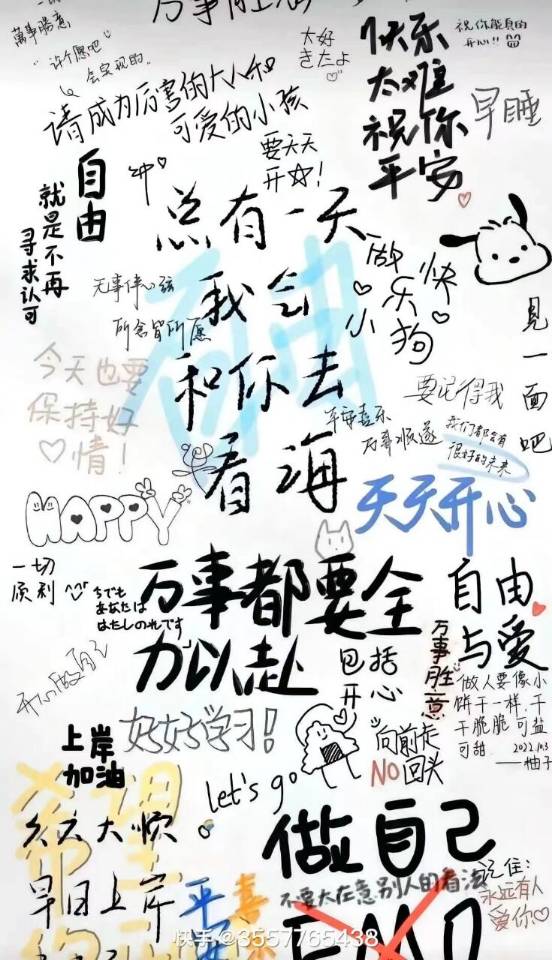 万事胜意
萬事勝意
"许个愿吧"
会实现的.
请成为厉害的大人和
可爱的小孩
大好
きだよ
快乐
太难
祝你
平安
祝你能真的
开心!!
早睡
自由
就是不再
寻求认可
要天天
开☆!
总有一天
我会
和你去
看海
做
快
乐
小
狗
见一面吧
无事伴心弦
所念皆所愿
自由
今天也要
保持好
♡情!
要记得我
平安喜乐
万事顺遂
我们都会有
很好的未来
天天开心
HAPPY
一切
顺利
でも
あなたは
わたしのれです
万事都要全
力以赴
包括
开心
自由
与爱
万事胜意
做人要像小
饼干一样,干
干脆脆 可盐
可甜
2022.10.3
——柚子
开心做自己
好好学习!
上岸
加油
let's go
向前走
NO回头
希望
大大大顺
早日上岸
平安
喜
做自己
不要太在意别人的看法
EMO
记住:
永远有人
爱你♡
快手 @3557765438